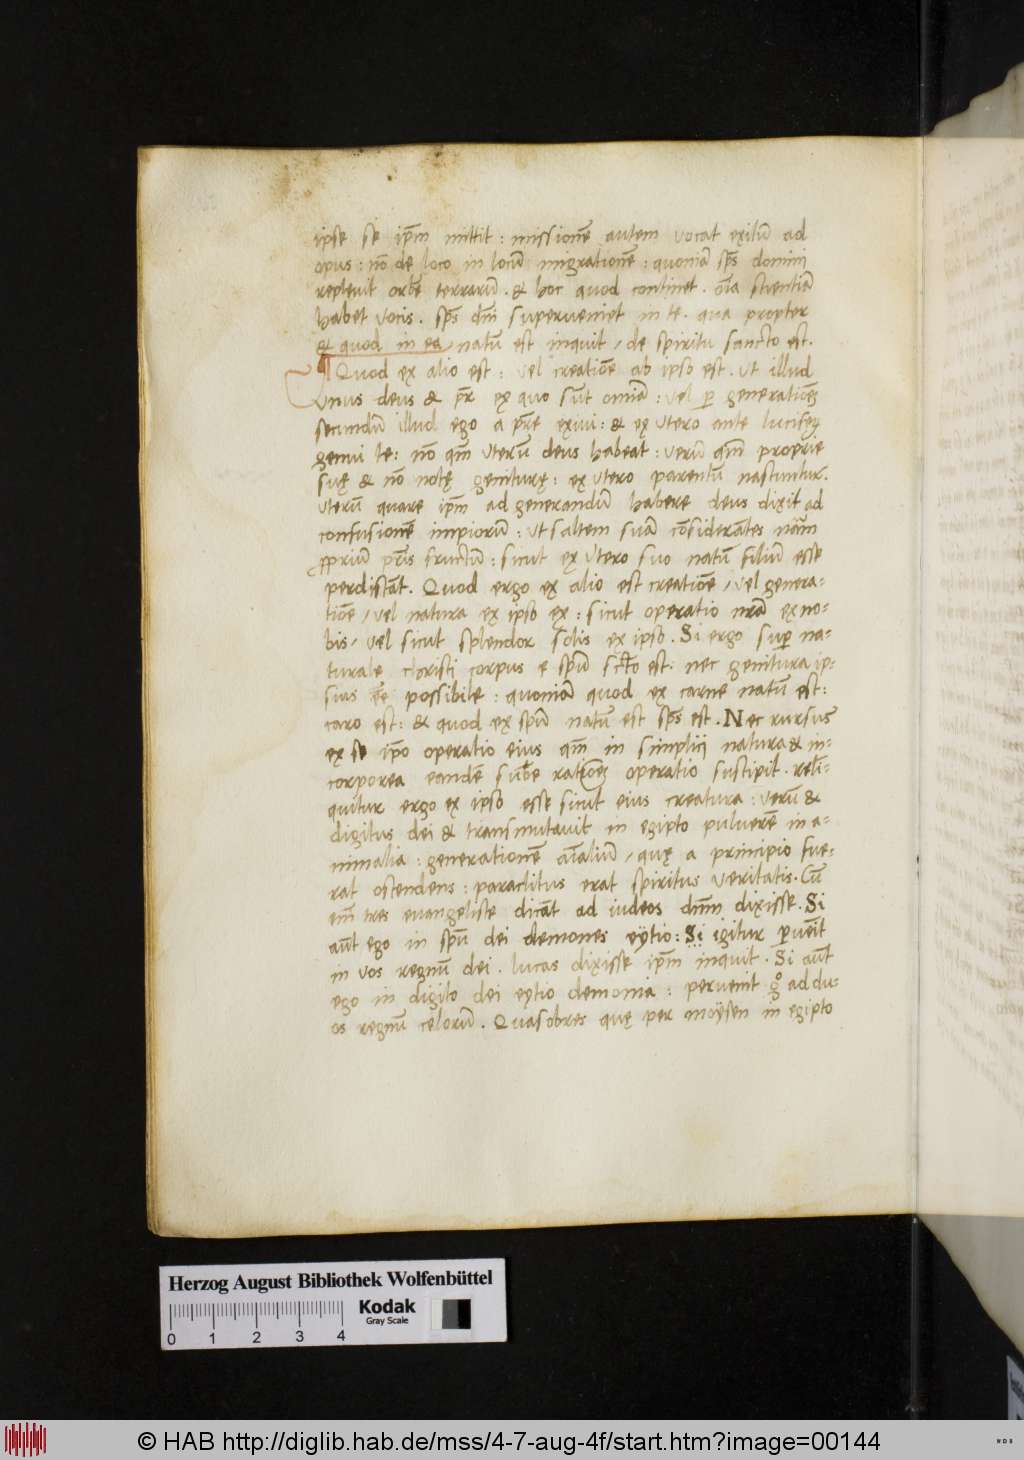 ipse se ip̄m mittit : missionē autem vocat exitū ad
opus : nō de loco in locū migrationē : quoniā sp̄s domini
replevit orbē terrarū . & hoc quod continet . oīa scientiā
habet vocis . sp̄s dm̄ superveniet in te . qua propter
& quod in ea natū est inquit / de spiritu sancto est .
¶ Quod ex alio est : vel creatiōe ab ipso est . ut illud
unus deus & pr̄ ex quo sūt omīa : vel ꝑ generationē
secundū illud ego a pr̄e exivi : & ex utero ante lucifeꝝ
genui te : nō qm̄ uterū deus habeat : verū qm̄ proprie
suę & nō notę geniturę : ex utero parentū nascuntur .
uterū quare ip̄m ad generandū habere deus dixit ad
confusionē impiorū : ut saltem suā cōsiderātes nām
ꝓpriū pr̄is fructū : sicut ex utero suo natū filiū esse
perdiscāt . Quod ergo ex alio est creatiōe / vel genera-
tiōe / vel natura ex ipso ex : sicut operatio nr̄a ex no-
bis / vel sicut splendor solis ex ipso . Si ergo suꝑ na-
turale christi corpus e spū sc̄to est : nec genitura ip-
sius eē possibile : quoniā quod ex carne natū est :
caro est : & quod ex spū natū est sp̄s est . Nec rursus
ex se ip̄o operatio eius qm̄ in simplici natura & in-
corporea eandē subīe rationē operatio suscipit . reli-
quitur ergo ex ipso esse sicut eius creatura : verū &
digitus dei & transmutavit in egipto pulverē in a-
nimalia : generationē aīalium / quę a principio fue-
rat ostendens : paraclitus erat spiritus veritatis . Cū
em̄ tres evangeliste dicāt ad iudeos dnm̄ dixisse . Si
aūt ego in spū dei demones eÿtio : Si igitur ꝑvēit
in vos regnū dei . lucas dixisse ip̄m inquit . Si aūt
ego in digito dei eÿtio demonia : pervenit gͦ ad du-
os regnū celorū . Quasobres quę per moÿsen in egipto
Herzog August Bibliothek Wolfenbüttel
Kodak
Gray Scale
0 1 2 3 4
© HAB http://diglib.hab.de/mss/4-7-aug-4f/start.htm?image=00144